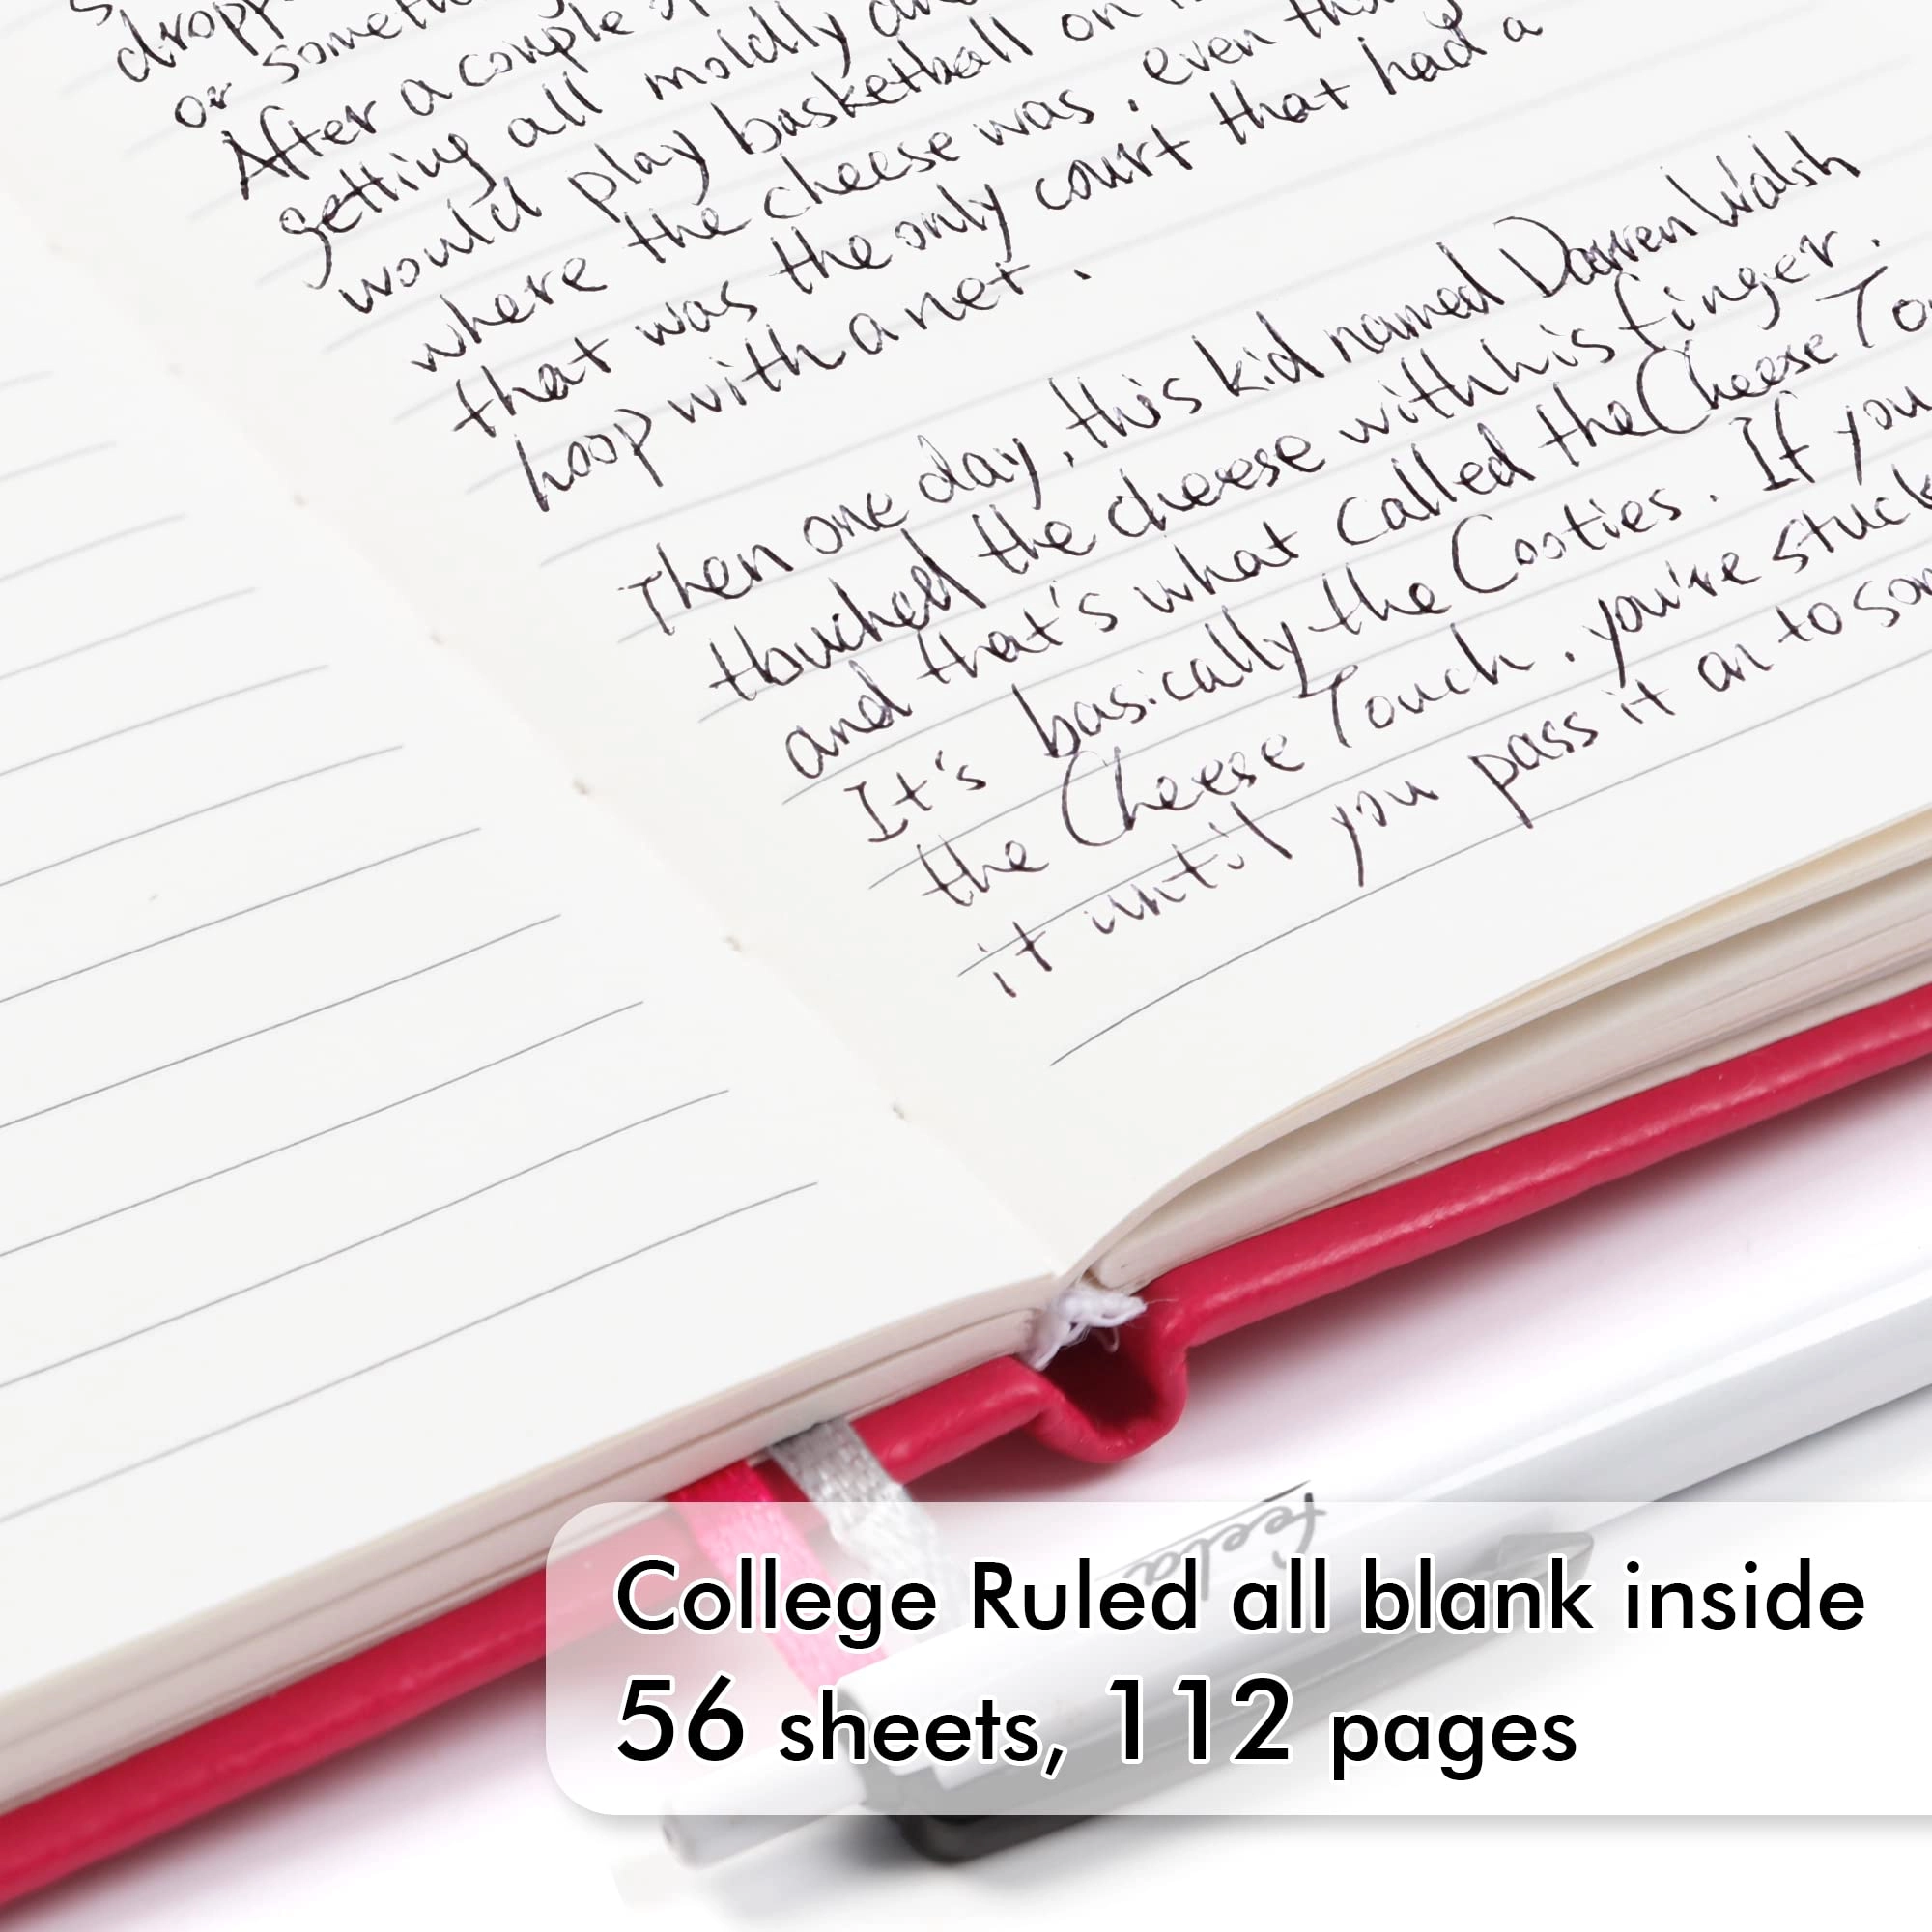 or
After a couple
getting all moldly
would play basketball on
where the cheese was, even
that was the only court that had a
hoop with a net.
Then one day, this kid named Darren Walsh
thouched the cheese with his finger.
and that's what called the Cheese
It's basically the Cooties. If you
the Cheese Touch, you're stuck
it until you pass it on to
feela
College Ruled all blank inside
56 sheets, 112 pages